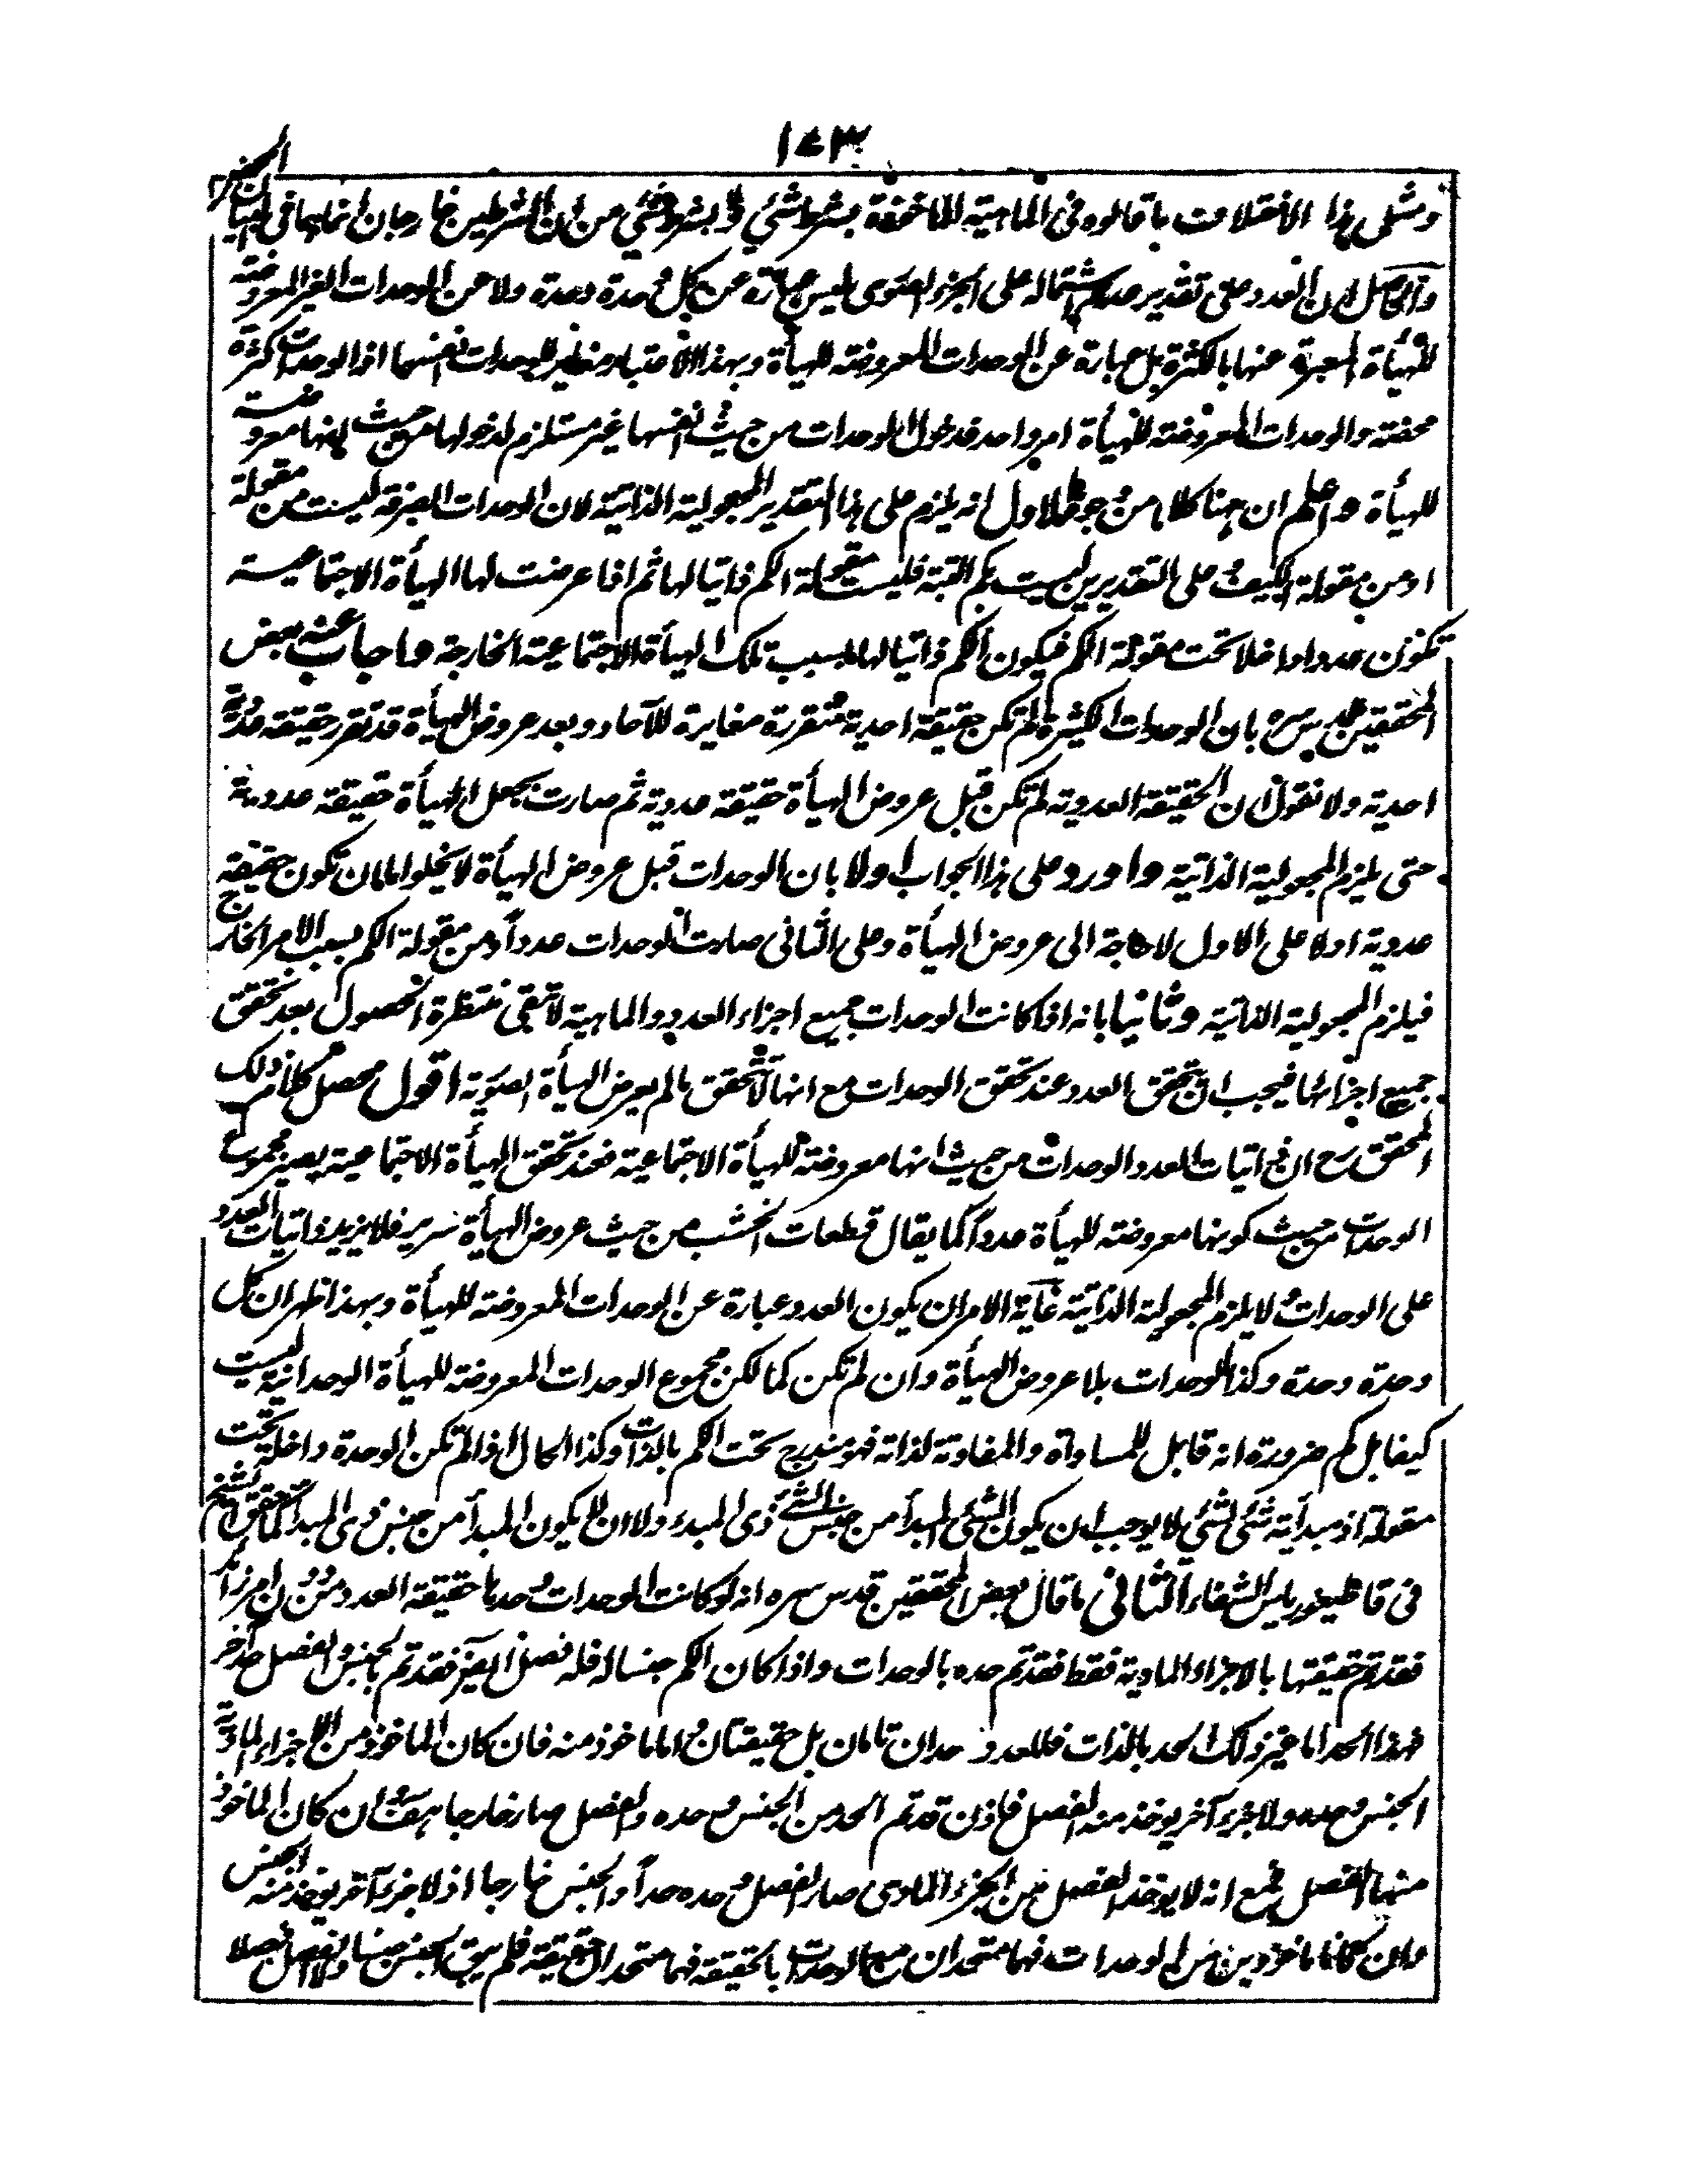 ١٧٣
ومثل هذا الاختلاف ما قالوه فى الماهية الماخوذة بشرط شئ ولا بشرط شئ من ان الشرطين خارجان انما هما فى البيان
والحاصل ان العدد على تقدير عدم اشتماله على الجزء الصورى ليس عبارة عن كل وحدة وحدة ولا عن الوحدات الغير المعروضة
للهيأة المعبرة عنها بالكثرة بل عبارة عن الوحدات المعروضة للهيأة وبهذا الاعتبار مغاير للوحدات نفسها اذ الوحدات كثرة
محضة والوحدات المعروضة للهيأة امر واحد فدخول الوحدات من حيث انفسها غير مستلزم لدخولها من حيث انها معروضة
للهيأة واعلم ان ههنا كلاما من وجوه الاول انه يلزم على هذا التقدير المجعولية الذاتية لان الوحدات الصرفة ليست من مقولة
او من مقولة الكيف وعلى التقديرين ليست بكم البتة فليست مقولة الكم ذاتيا لها ثم اذا عرضت لها الهيأة الاجتماعية
تكون عددا داخلا تحت مقولة الكم فيكون الكم ذاتيا لها بسبب تلك الهيأة الاجتماعية الخارجة واجاب عنه بعض
المحققين قدس سره بان الوحدات الكثيرة لم تكن حقيقة احدية متقررة مغايرة للآحاد وبعد عروض الهيأة قد تقرر حقيقة عددية
احدية ولا نقول ان الحقيقة العددية لم تكن قبل عروض الهيأة حقيقة عددية ثم صارت بجعل الهيأة حقيقة عددية
حتى يلزم المجعولية الذاتية واورد على هذا الجواب اولا بان الوحدات قبل عروض الهيأة لا يخلو اما ان تكون حقيقة
عددية اولا على الاول لا حاجة الى عروض الهيأة وعلى الثانى صارت الوحدات عددا ومن مقولة الكم بسبب الامر الخارج
فيلزم المجعولية الذاتية وثانيا بانه اذا كانت الوحدات جميع اجزاء العدد والماهية لا تبقى منتظرة الحصول بعد تحقق
جميع اجزائها فيجب ان يتحقق العدد عند تحقق الوحدات مع انها لا تتحقق مالم يعرض الهيأة الصورية اقول محصل كلام ذلك
المحقق رح ان ذاتيات العدد الوحدات من حيث انها معروضة للهيأة الاجتماعية فعند تحقق الهيأة الاجتماعية يصير مجموع
الوحدات من حيث كونها معروضة للهيأة عددا كما يقال قطعات الخشب من حيث عروض الهيأة سرير فلا يزيد ذاتيات العدد
على الوحدات ولا يلزم المجعولية الذاتية غاية الامر ان يكون العدد عبارة عن الوحدات المعروضة للهيأة وبهذا ظهر ان كل
وحدة وحدة وكذا الوحدات بلا عروض الهيأة وان لم تكن كما لكن مجموع الوحدات المعروضة للهيأة الوحدانية ليست
كيفا بل كم ضرورة انه قابل للمساواة والمفاوتة لذاته فهو مندرج تحت الكم بالذات وكذا الحال اذا لم تكن الوحدة داخلة تحت
مقولة اذ مبدأية شئ لشئ لا يوجب ان يكون الشئ المبدأ من جنس الشئ ذى المبدء ولا ان لا يكون المبدأ من جنس ذى المبدأ كما حقق الشيخ
فى قاطيغورياس الشفاء الثانى ما قال بعض المحققين قدس سره انه لو كانت الوحدات وحدها حقيقة العدد من دون امر زائد
فقد تم حقيقتها بالاجزاء المادية فقط فقد تم حده بالوحدات واذا كان الكم جنسا له فله فصل ايضا فقد تم بالجنس والفصل حد آخر
فهذا الحد اما غير ذلك الحد بالذات فللعدد حدان تامان بل حقيقتان واما ماخوذ منه فان كان الماخوذ من الاجزاء المادية
الجنس وحده ولا جزء آخر يوخذ منه الفصل فاذن قد تم الحد من الجنس وحده والفصل صار خارجا هف وان كان الماخوذ
منها الفصل فمع انه لا يوخذ الفصل من الجزء المادى صار الفصل وحده حدا والجنس خارجا اذ لا جزء آخر يوخذ منه الجنس
وان كانا ماخوذين من الوحدات فهما متحدان مع الوحدات بالحقيقة فهما متحدان حقيقة فلم يبق الجنس جنسا ولا الفصل فصلا